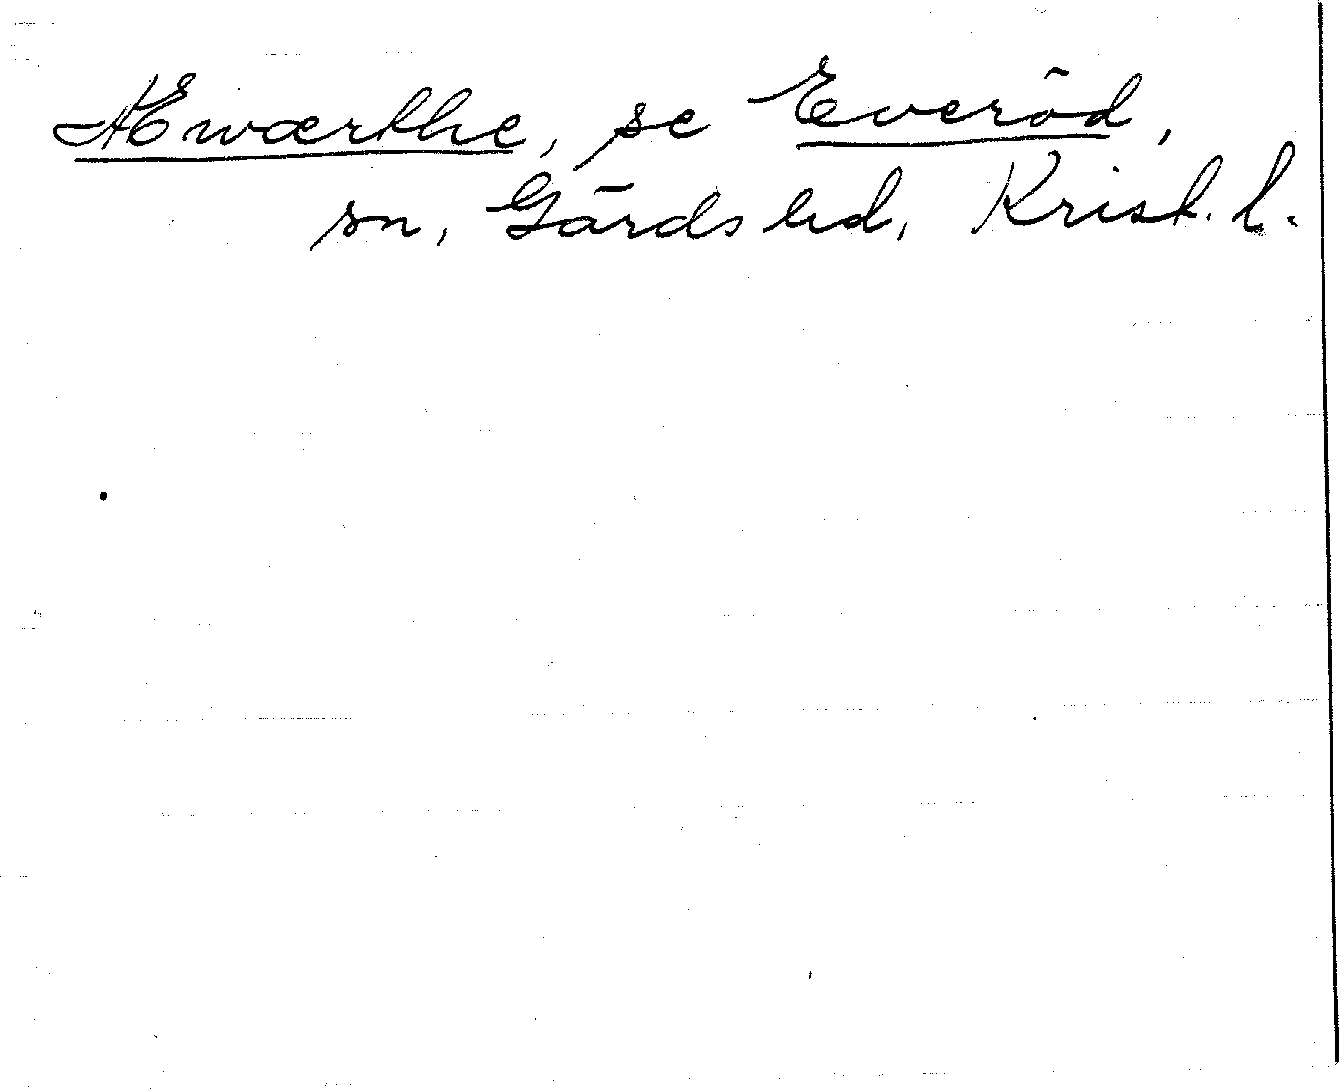 Æwærthe, se Everöd,
sn, Gärds hd, Krist. l.